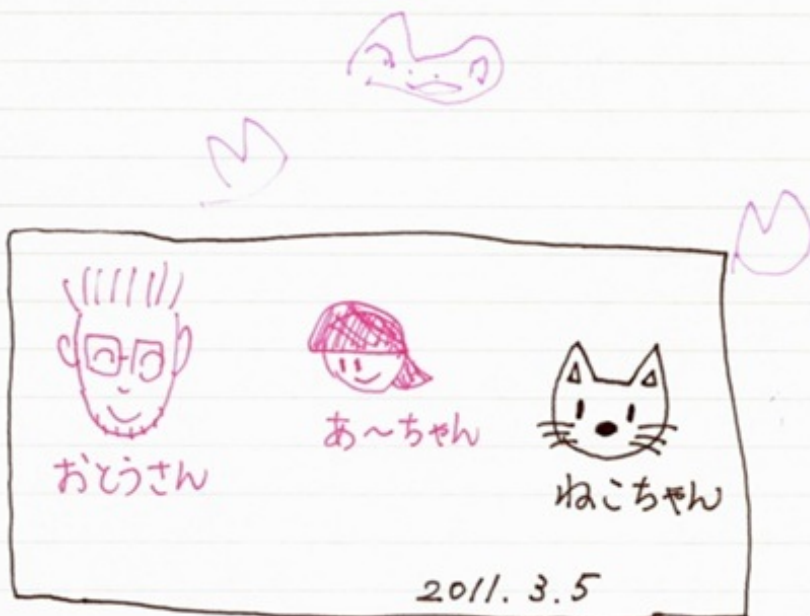 おとうさん
あ～ちゃん
ねこちゃん
2011.3.5